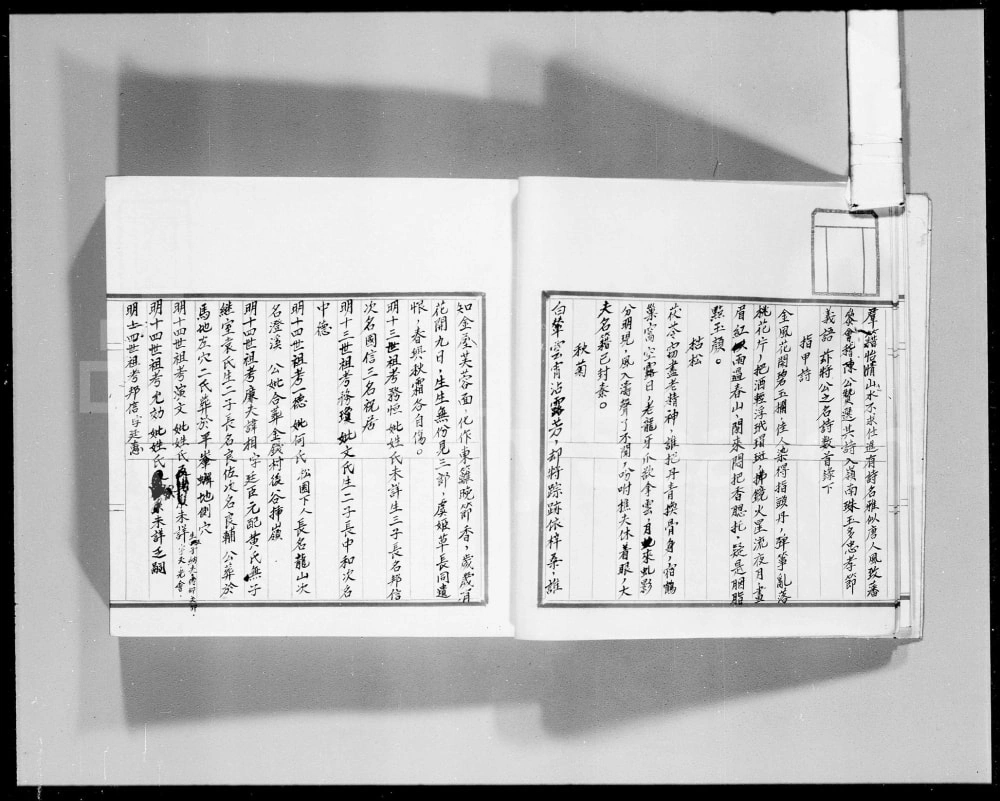 羣籍怡情山水不求仕進有詩名雅似唐人風致番
叅會稽陳公贊選其詩入嶺南珠玉多忠孝節
義語 詐將公之名詩数首錄下
指甲詩
金風花開碧玉欄佳人染得指頭丹，弹箏亂落
桃花片，把酒輕浮玳瑁斑，拂鏡火星流夜月，畫
眉紅雨過春山，閑來悶把香腮托，疑是胭脂
點玉顏。
枯松
茯苓窃盡老精神，誰把丹青換骨身，宿鶴
巢窩空露日，老龍牙爪欲拿雲，月來虬影
分明見，風入濤聲了不聞，吩咐樵夫休着眼，大
夫名籍已封秦。
秋菊
白筆雲霄沾露芳，却將踪跡依梓桑，誰
知金屋芙蓉面，化作東籬晚節香，歲歲有
花開九日，生生無份見三郎，虞姬草長同遺
恨，春興秋霜各自傷。
明十三世祖考務恒 妣姓氏未詳生三子長名邦信
次名國信三名祝居
明十三世祖考務瓊 妣文氏生二子長中和次名
中德
明十四世祖考一德 妣何氏 岊園下人長名龍山次
名澄溪 公妣合葬金錢村後谷挿嶺
明十四世祖考廉夫諱相，字廷臣元配黄氏無子
継室袁氏生二子長名良佐次名良輔 公葬於
馬地左穴二氏葬於平峯嶼地側穴
明十四世祖考演文 妣姓氏未詳
明十四世祖考尤効 妣姓氏未詳乏嗣
明十四世祖考邦信字廷惠